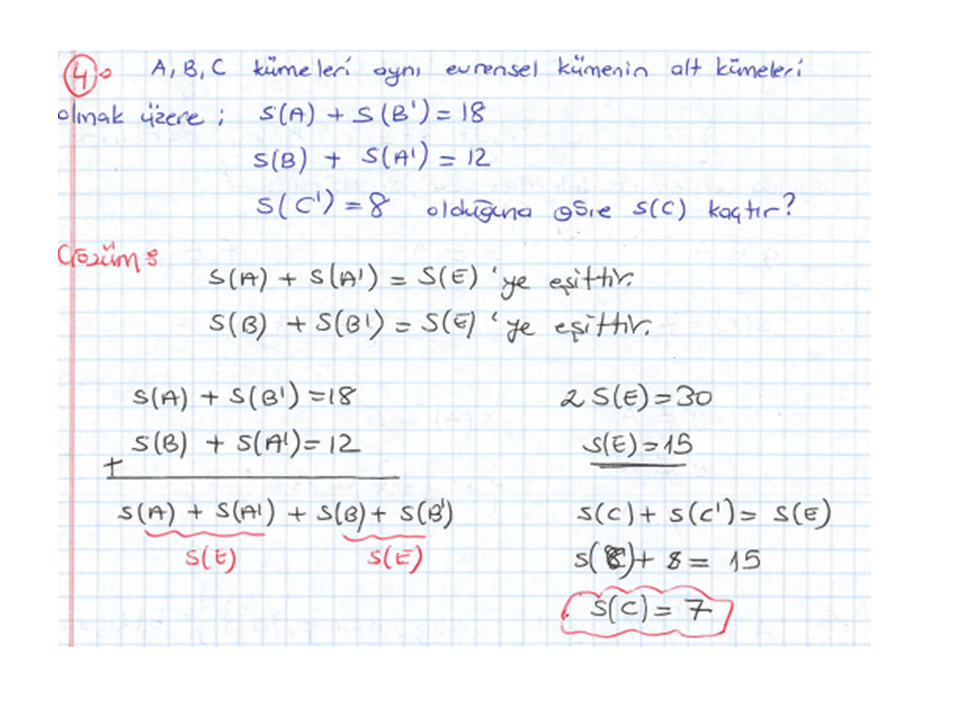 4. A, B, C kümeleri aynı evrensel kümenin alt kümeleri
olmak üzere ; S(A) + S(B') = 18
S(B) + S(A') = 12
S(C') = 8 olduğuna göre S(C) kaçtır?
Çözüm :
S(A) + S(A') = S(E) 'ye eşittir.
S(B) + S(B') = S(E) 'ye eşittir.
S(A) + S(B') = 18
S(B) + S(A') = 12
+
S(A) + S(A') + S(B) + S(B')
S(E) S(E)
2 S(E) = 30
S(E) = 15
S(C) + S(C') = S(E)
S(C) + 8 = 15
S(C) = 7